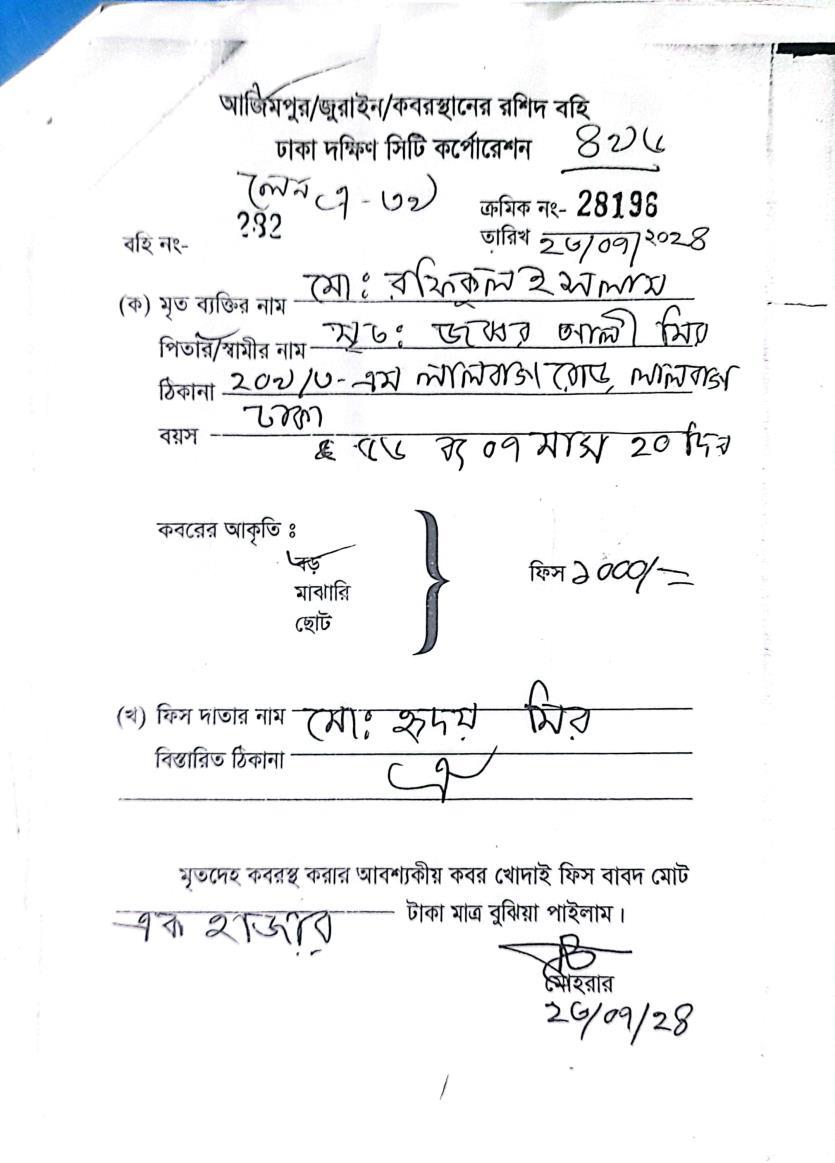 আজিমপুর/জুরাইন/কবরস্থানের রশিদ বহি
ঢাকা দক্ষিণ সিটি কর্পোরেশন ৪২৬
লেন এ - ৩২
ক্রমিক নং- 28196
বহি নং- 282
তারিখ ২৩/০৭/২০২৪
(ক) মৃত ব্যক্তির নাম মো: রফিকুল ইসলাম
পিতার/স্বামীর নাম মৃত: জব্বার আলী মির
ঠিকানা ২০২/৩-এম লালবাগ রোড, লালবাগ
ঢাকা
বয়স বৎ ০৭ মাস ২০ দিন
কবরের আকৃতি ঃ
বড়
মাঝারি
ছোট
ফিস ১০০০/=
(খ) ফিস দাতার নাম মো: হৃদয় মির
বিস্তারিত ঠিকানা ঐ
মৃতদেহ কবরস্থ করার আবশ্যকীয় কবর খোদাই ফিস বাবদ মোট
এক হাজার টাকা মাত্র বুঝিয়া পাইলাম।
মোহরার
২৩/০৭/২৪